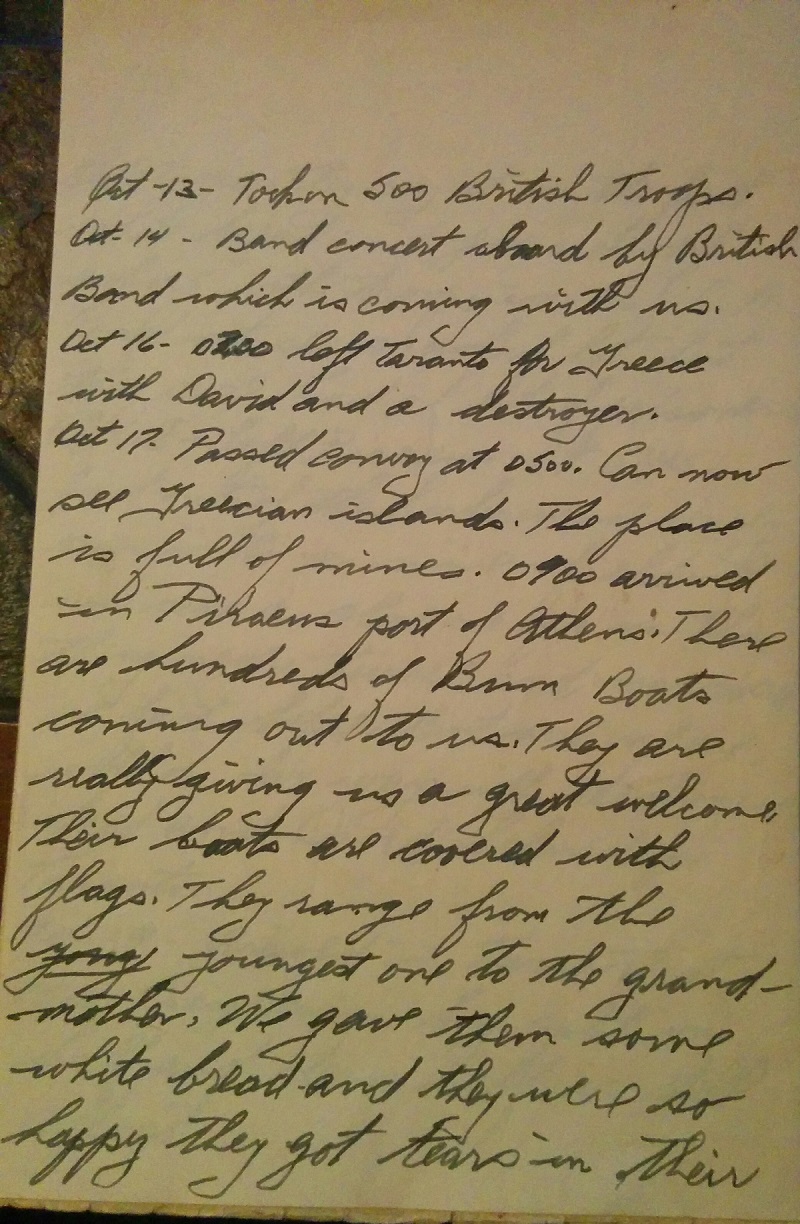 Oct -13- Took on 500 British Troops.
Oct- 14 - Band concert aboard by British
Band which is coming with us.
Oct 16- 0700 left Taranto for Greece
with David and a destroyer.
Oct 17- Passed convoy at 0500. Can now
see Greecian islands. The place
is full of mines. 0900 arrived
in Piraeus port of Athens. There
are hundreds of Bum Boats
coming out to us. They are
really giving us a great welcome.
Their boats are covered with
flags. They range from the
yong youngest one to the grand-
mother. We gave them some
white bread and they were so
happy they got tears in their